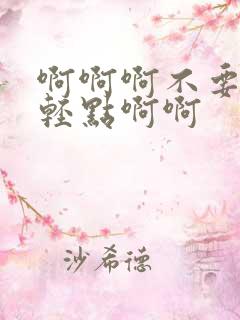 啊啊啊不要
輕點啊啊
沙希德